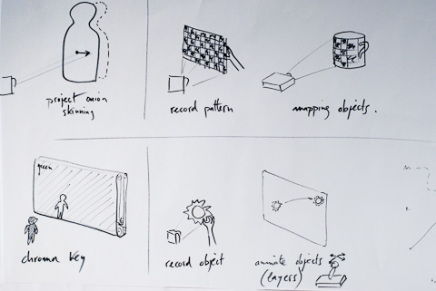 project onion
skinning
record pattern
mapping objects.
green
chroma key
record object
animate objects
(layers)